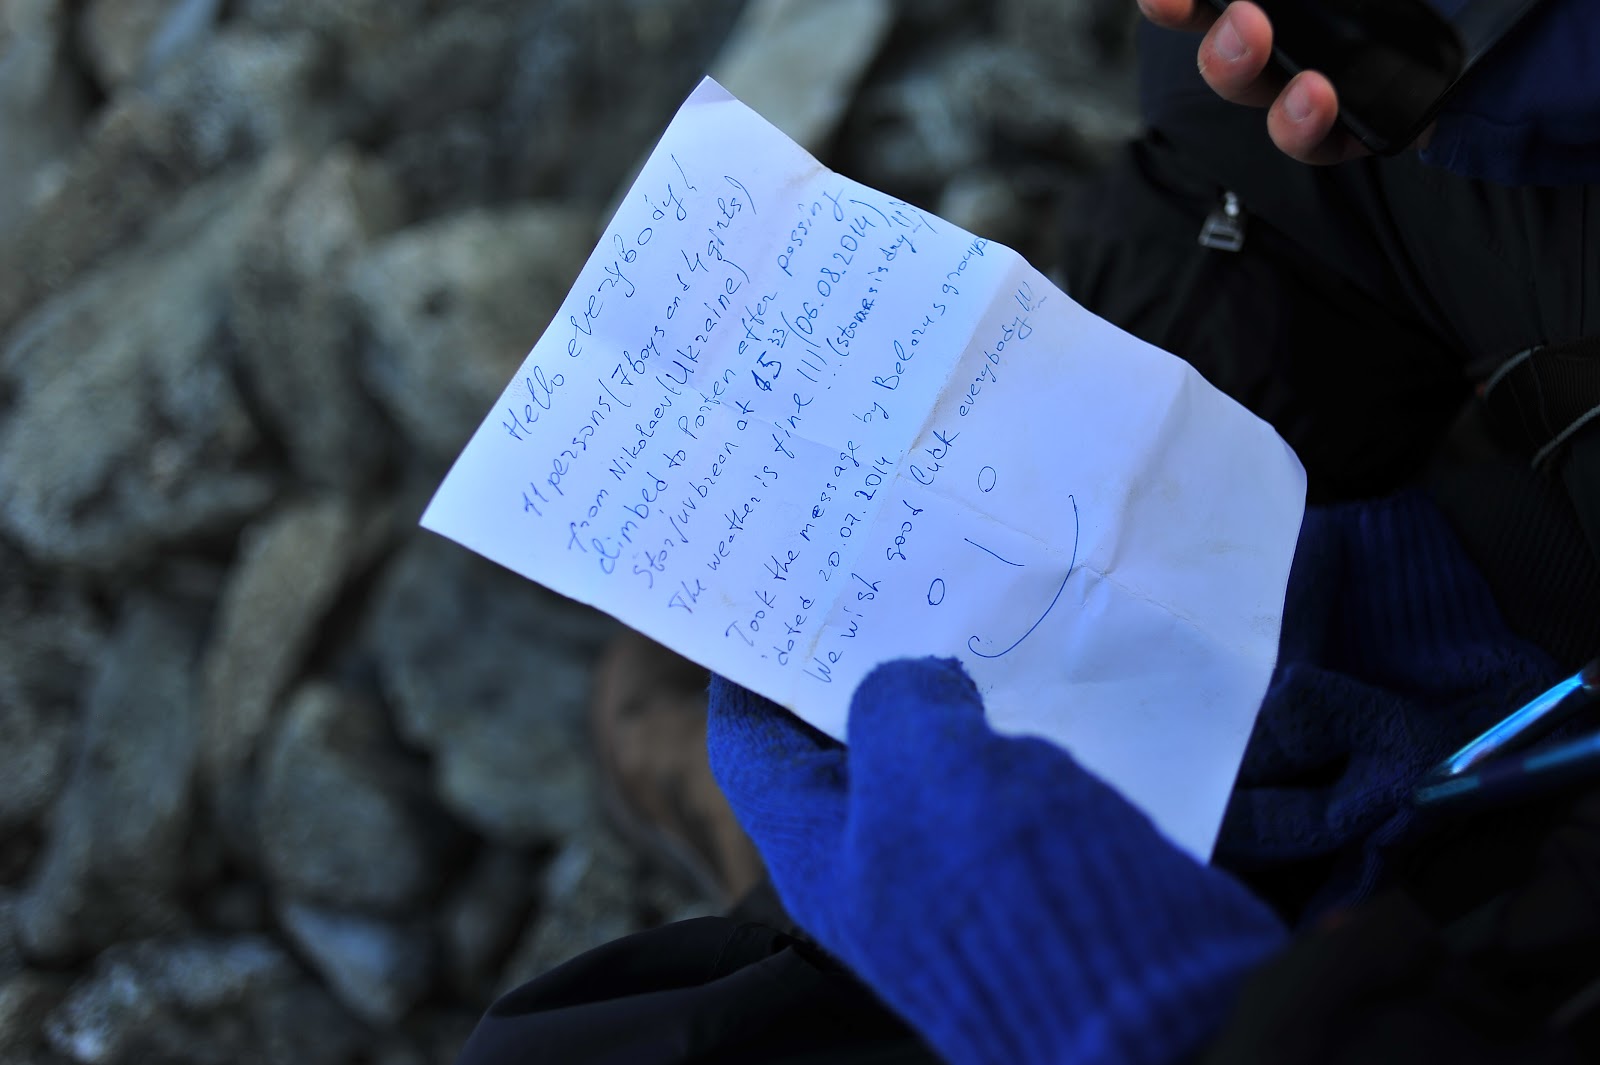 Hello everybody!
11 persons (7 boys and 4 girls)
from Nikolaev (Ukraine)
climbed to Porten after passing
Storjuvbreen at 15 33 (06.08.2014)
The weather is fine!!!) ... (stones is dry!!!)
Took the message by Belarus groups
dated 20.07.2014.
We wish good luck everybody!!!